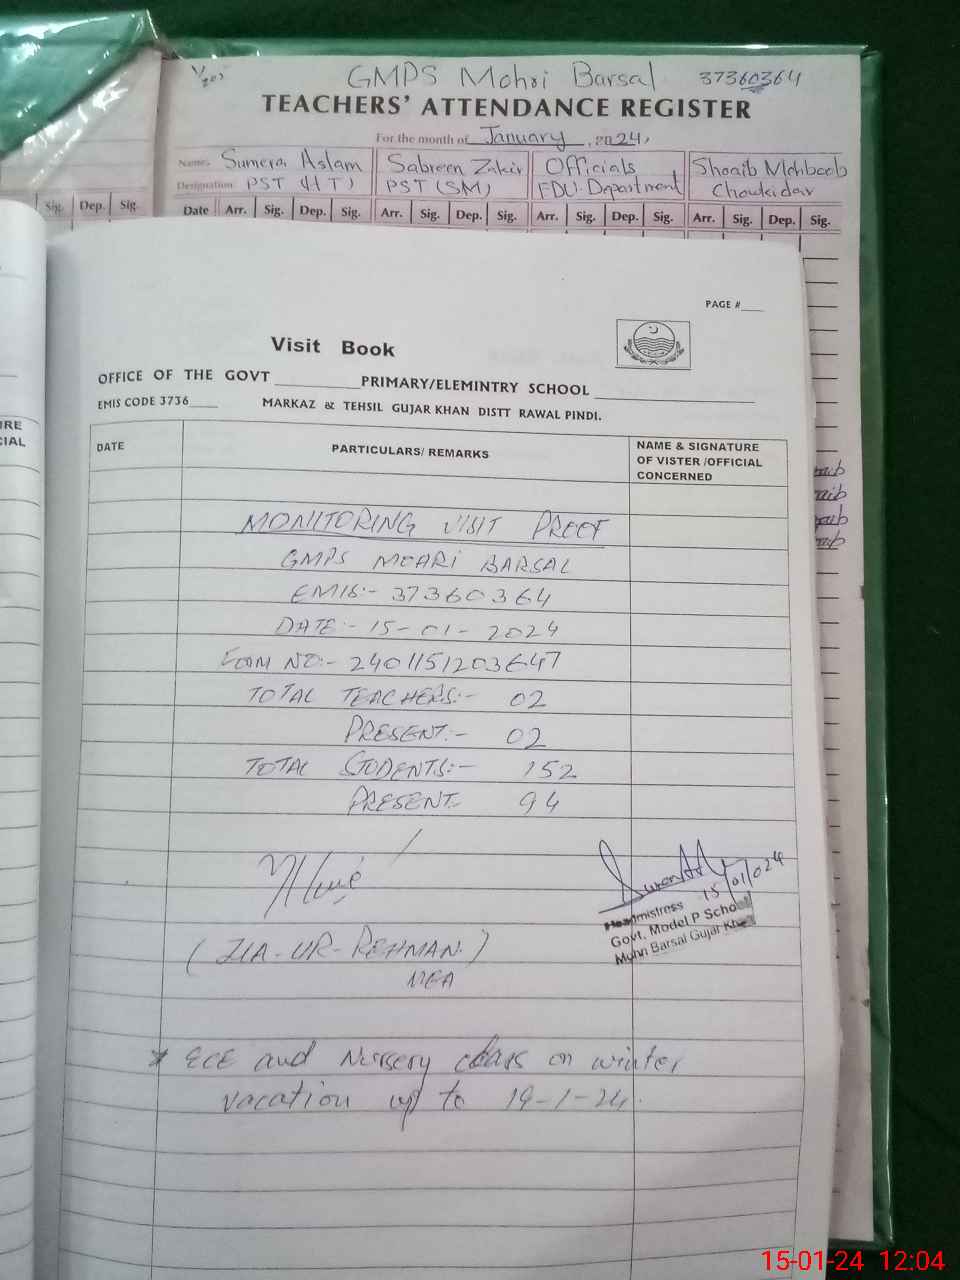 GMPS Mohri Barsal 37360364
TEACHERS' ATTENDANCE REGISTER
For the month of January, 2024,
Name: Sumera Aslam Sabreen Zakir Officials Shoaib Mehboob
Designation: PST (HT) PST (SM) EDU: Department Chowkidar
Sig. Dep. Sig. Date Arr. Sig. Dep. Sig. Arr. Sig. Dep. Sig. Arr. Sig. Dep. Sig. Arr. Sig. Dep. Sig.
PAGE #
Visit Book
OFFICE OF THE GOVT PRIMARY/ELEMINTRY SCHOOL
EMIS CODE 3736 MARKAZ & TEHSIL GUJAR KHAN DISTT RAWAL PINDI.
DATE PARTICULARS/ REMARKS NAME & SIGNATURE
OF VISTER /OFFICIAL
CONCERNED
MONITORING VISIT PROOF
GMPS MOHRI BARSAL
EMIS:- 37360364
DATE:- 15-01-2024
FORM NO:- 2401151203647
TOTAL TEACHERS:- 02
PRESENT:- 02
TOTAL STUDENTS:- 152
PRESENT:- 94
15/01/024
Headmistress
Govt. Model P School
Mohri Barsal Gujar Khan
(ZIA-UR-REHMAN)
MEA
* ECE and Nursery class on winter
vacation up to 19-1-24.
15-01-24 12:04